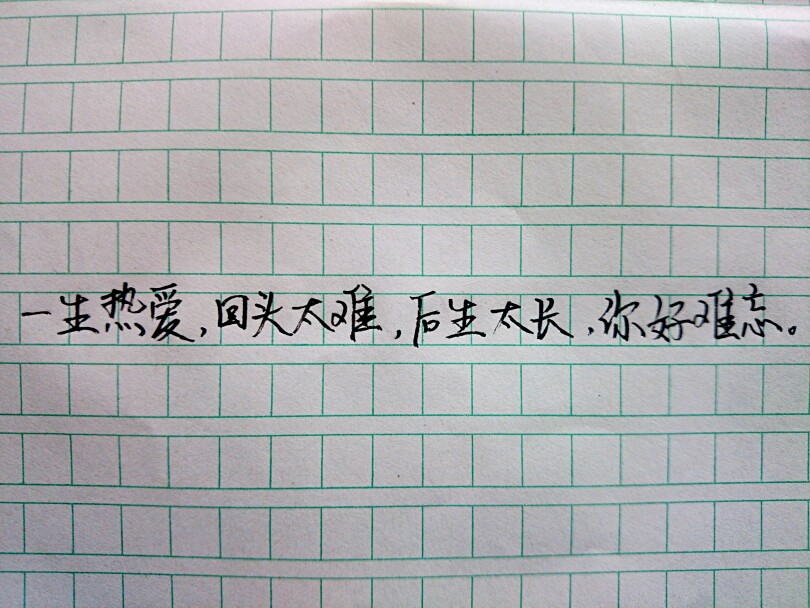 一生热爱，回头太难，后生太长，你好难忘。